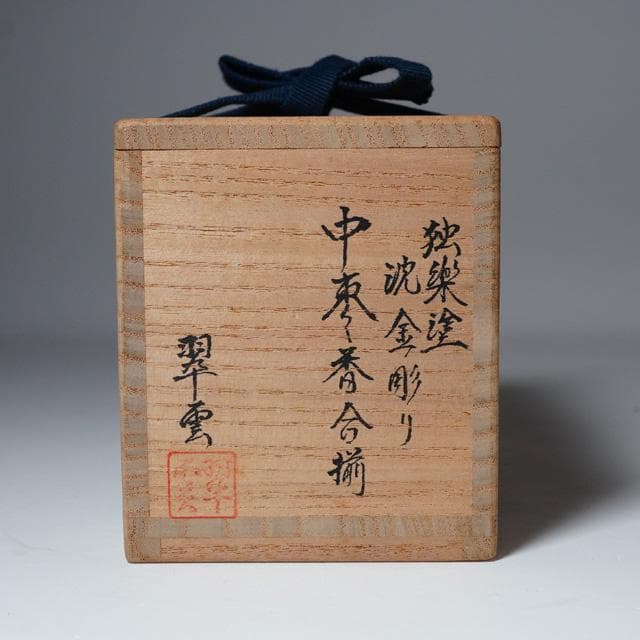 独樂塗
沈金彫り
中棗香合揃
翠雲